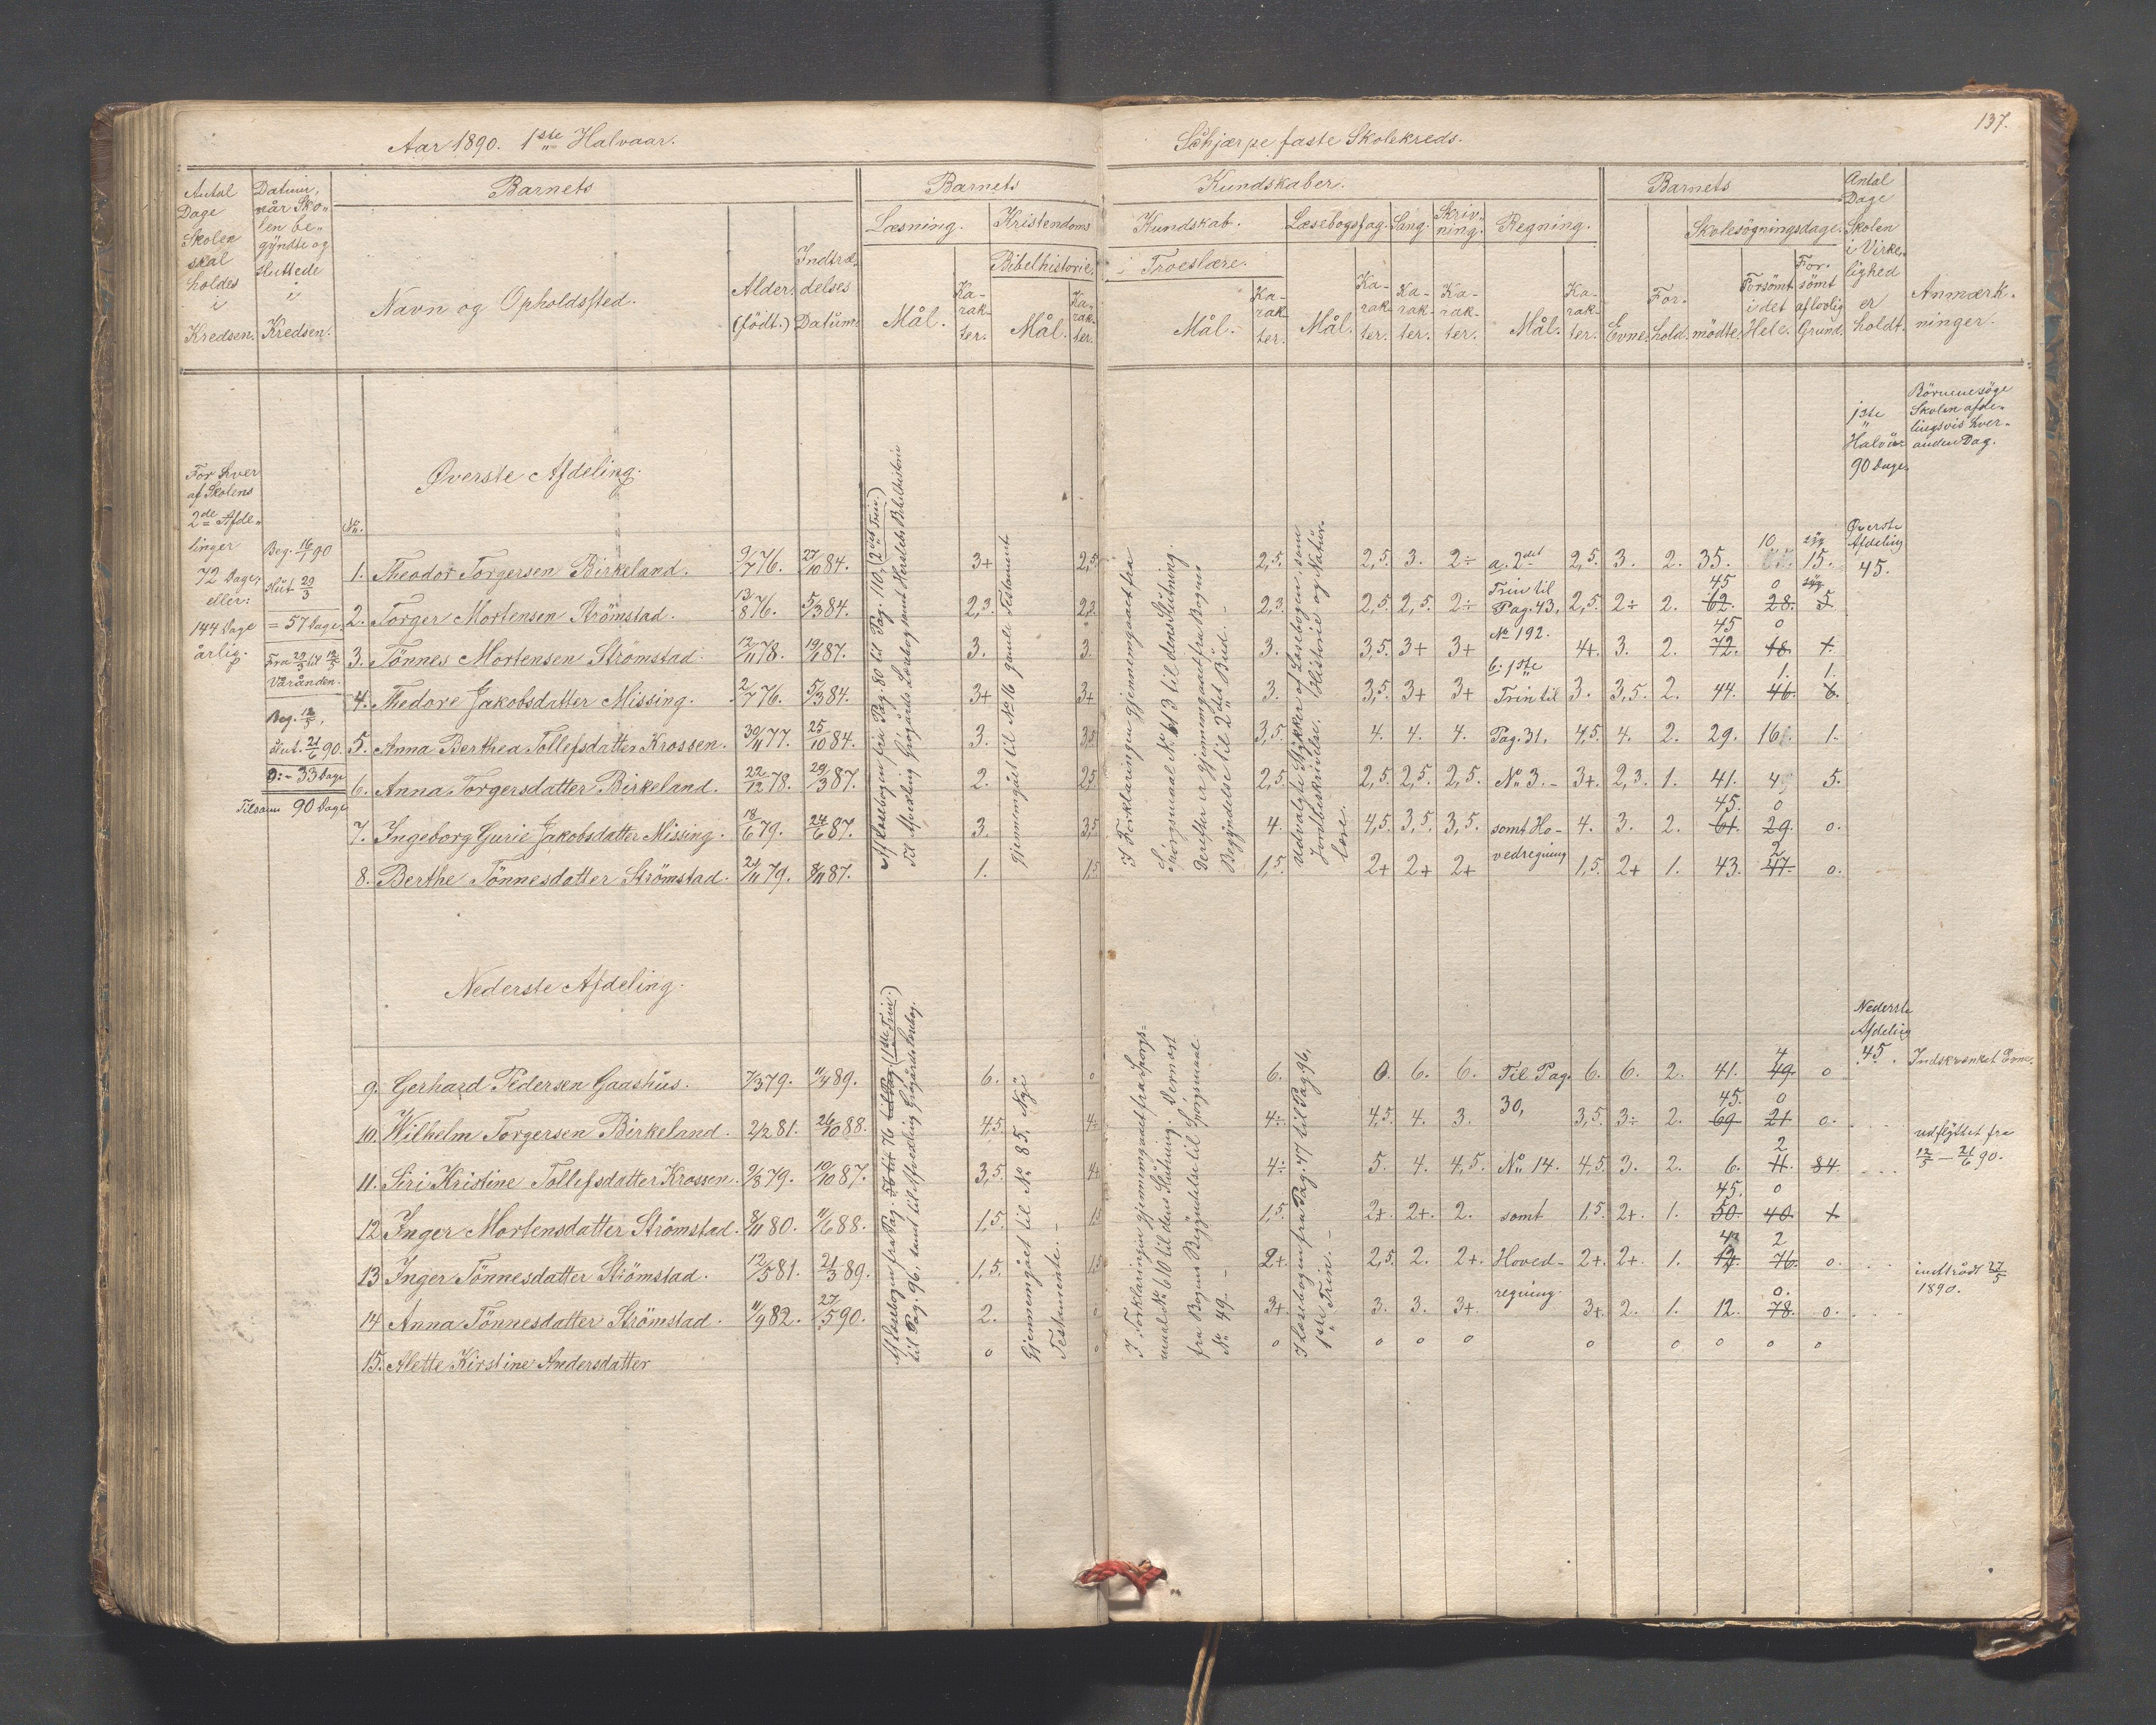 137.
Aar 1890. 1ste Halvaar.
Schjærpe faste Skolekreds.
Antal Dage Skolen skal holdes i Kredsen.
Datum, når Sko- len be- gyndte og sluttede i Kredsen.
Barnets
Navn og Opholdssted.
Alder. (født.)
Indtræ- delses Datum.
Barnets Kundskaber.
Læsning. Mål. Ka- rak- ter.
Kristendoms Kundskab.
Bibelhistorie. Mål. Ka- rak- ter.
i Troeslære. Mål. Ka- rak- ter.
Læsebogsfag. Mål. Ka- rak- ter.
Sang. Ka- rak- ter.
Skriv- ning. Ka- rak- ter.
Regning. Mål. Ka- rak- ter.
Barnets
Evne. For- hold.
Skolesøgningsdage.
mödte. Forsömt i det Hele. For- sömt af lovlig Grund.
Antal Dage Skolen i Virke- lighed er holdt.
Anmærk- ninger.
For hver
af Skolens
2de Afde-
linger
72 Dage,
eller:
144 Dage
årlig.
Beg. 16/1 90
Slut 29/3
= 57 Dage.
Fra 29/3 til 12/5
Våränden.
Beg. 12/5,
slut. 21/6 90.
= 33 Dage
Tilsam 90 Dage
1ste
Halvår
90 Dage.
Börnene söge
Skolen afde-
lingsvis hver-
anden Dag.
Øverste Afdeling.
No.
Øverste
Afdeling
45.
1. Theodor Torgersen Birkeland. 9/7 76. 27/10 84. 3+ 2,5. 2,5. 2,5. 3. 2÷ a. 2det 2,5. 3. 2. 35. 10. syg 15.
2. Torger Mortensen Strömstad. 13/8 76. 5/3 84. 2,3. 2,3. 2,3. 2,5. 2,5. 2÷ Trin til Pag. 43, 2,5. 2÷ 2. 45 62. 0 28. syg. 5
3. Tönnes Mortensen Strömstad. 12/11 78. 19/1 87. 3. 3. 3. 3,5. 3+ 3+ No 192. 4+. 3. 2. 45 72. 0 18. 1.
4. Thedore Jakobsdatter Missing. 2/7 76. 5/3 84. 3+ 3+ 3. 3,5. 3+ 3+ b: 1ste Trin til 3. 3,5. 2. 44. 1. 46. 1. 6.
5. Anna Berthea Tollefsdatter Krossen. 30/11 77. 25/10 84. 3. 3,5 3,5. 4. 4. 4. Pag. 31, 4,5. 4. 2. 29. 16. 1.
6. Anna Torgersdatter Birkeland. 22/12 78. 29/3 87. 2. 2,5 2,5. 2,5. 2,5. 2,5. No 3. - 3+. 2,3. 1. 41. 4 5.
7. Ingeborg Gurie Jakobsdatter Missing. 18/6 79. 24/6 87. 3. 3,5 4. 4,5. 3,5. 3,5. samt Ho- 4. 3. 2. 45. 61. 0 29. 0.
8. Berthe Tönnesdatter Strömstad. 21/11 79. 8/11 87. 1. 1,5 1,5. 2+ 2+ 2+ vedregning 1,5. 2+ 1. 43. 2 47. 0.
Af Læsebogen fra Pag. 80 til Pag. 110, (2det Trin.)
Til Afvexling Grögårds Læsebog samt Herslebs Bibelhistorie
Gjennemgået til No 16 gamle Testament
I Forklaringen gjennemgaaet fra
Spörgsmaal No 613 til dens Slutning.
Derefter er gjennemgaaet fra Bogens
Begyndelse til 2det Bud. -
Udvalgte Stykker af Læsebogen, som
Jordbeskrivelse, Historie og Natur-
lære.
Nederste Afdeling.
Nederste
Afdeling
45.
9. Gerhard Pedersen Gaashus. 7/3 79. 11/4 89. 6. 0 6. 0. 6. 6. Til Pag. 6. 6. 2. 41. 4 49. 0 Indskrænket Evne.
10. Wilhelm Torgersen Birkeland. 2/2 81. 26/10 88. 4,5 4÷ 4÷. 4,5. 4. 3. 30, 3,5. 3÷ 2. 45. 69 0 21 0.
11. Siri Kristine Tollefsdatter Krossen. 9/8 79. 19/10 87. 3,5. 4+ 4÷ 5. 4. 4,5. No 14. 4,5. 3. 2. 6. 2 11. 84. udflyttet fra 12/5 - 21/6 90.
12. Inger Mortensdatter Strömstad. 8/11 80. 11/6 88. 1,5. 1,5 1,5. 2+. 2+. 2. samt 1,5. 2+. 1. 45. 50. 0 40. 1
13. Inger Tönnesdatter Strömstad. 12/5 81. 21/3 89. 1,5. 1,5 2+. 2,5. 2. 2+. Hoved- 2+. 2+. 1. 43 2 76. 0.
14. Anna Tönnesdatter Strömstad. 11/9 82. 27/5 90. 2. 0 3+ 3. 3. 3+. regning. 3+. 2. 1. 12. 0. 78. 0. indtrådt 27/5 1890.
15. Alette Kirstine Andersdatter 0 0 0 0 0 0 0 0 0 0 0
Af Læsebogen fra Pag. 56 til 76 til Pag. (1ste Trin.)
til Pag. 96, samt til Afvexling Grögårds Læsebog.
Gjennemgået til No 85, Nye
Testamente. -
I Forklaringen gjennemgaaet fra Spörgs-
maal No 610 til dens Slutning. Dernæst
fra Bogens Begyndelse til Spörgsmaal
No 49. -
I Læsebogen fra Pag. 47 til Pag. 96,
1ste Trin. -